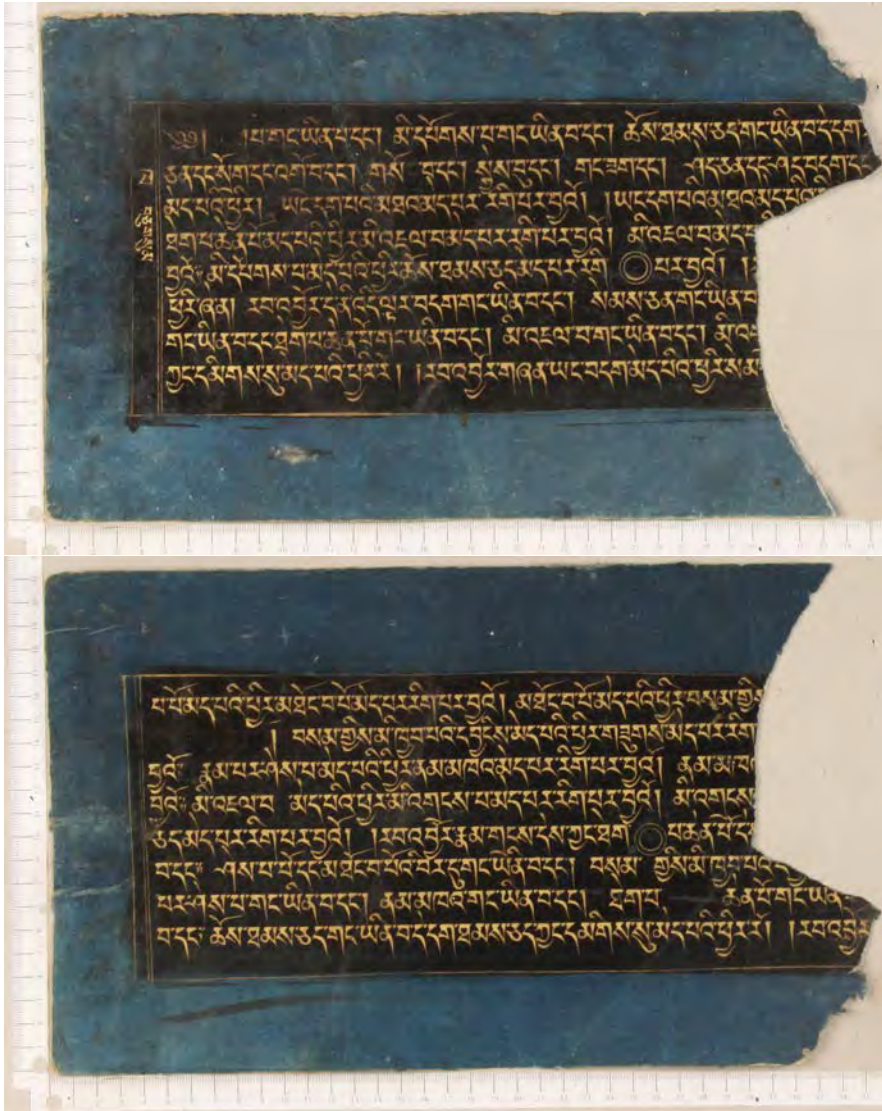 ༄༅། །པ་གང་ཡིན་བ་དང། མི་དམིགས་པ་གང་ཡིན་བ་དང། ཆོས་ཐམས་ཅད་གང་ཡིན་བ་དེ་དག་
ཅན་དང་སྲོག་དང་འགྲོ་བ་དང། གསོ་བ་དང། སྐྱེས་བུ་དང། གང་ཟག་དང། ཤེད་ཅན་དང་ཤེད་བདག་དང་
མེད་པའི་ཕྱིར། ཡང་དག་པའི་མཐའ་མེད་པར་རིག་པར་བྱའོ། །ཡང་དག་པའི་མཐའ་མེད་པའི་
ཐེག་པ་ཆེན་པོ་མེད་པའི་ཕྱིར་མི་འཇལ་བ་མེད་པར་རིག་པར་བྱའོ། མི་འཇལ་བ་མེད་པ
བྱའོ༔ མི་དམིགས་པ་མེད་པའི་ཕྱིར་ཆོས་ཐམས་ཅད་མེད་པར་རིག པར་བྱའོ།
ཕྱིར་ཞེ་ན། རབ་འབྱོར་དེ་ནི་འདི་ལྟར་བདག་གང་ཡིན་བ་དང། སེམས་ཅན་གང་ཡིན་བ
གང་ཡིན་བ་དང་ཐེག་པ་ཆེན་པོ་གང་ཡིན་བ་དང། མི་འཇལ་བ་གང་ཡིན་བ་དང། མི་འ
ཀྱང་དམིགས་སུ་མེད་པའི་ཕྱིར་རོ། །རབ་འབྱོར་གཞན་ཡང་བདག་མེད་པའི་ཕྱིར་སེམ
པ་པོ་མེད་པའི་ཕྱིར་མཐོང་བ་པོ་མེད་པར་རིག་པར་བྱའོ། མཐོང་བ་པོ་མེད་པའི་ཕྱིར་བསམ་གྱིས
། བསམ་གྱིས་མི་ཁྱབ་པའི་དབྱིངས་མེད་པའི་ཕྱིར་གཟུགས་མེད་པར་རིག
བྱའོ༔ རྣམ་པར་ཤེས་པ་མེད་པའི་ཕྱིར་ནམ་མཁའ་མེད་པར་རིག་པར་བྱའོ། ནམ་མཁའ
བྱའོ༔ མི་འཇལ་བ མེད་པའི་ཕྱིར་མི་འགྲངས་པ་མེད་པར་རིག་པར་བྱའོ། མི་འགྲངས
ཅད་མེད་པར་རིག་པར་བྱའོ། །རབ་འབྱོར་རྣམ་གྲངས་དེས་ཀྱང་ཐེག པ་ཆེན་པོ་དེ
བ་དང༔ ཤེས་པ་པོ་དང་མཐོང་བ་པོའི་བར་དུ་གང་ཡིན་བ་དང། བསམ་གྱིས་མི་ཁྱབ་པའི་
པར་ཤེས་པ་གང་ཡིན་བ་དང། ནམ་མཁའ་གང་ཡིན་བ་དང། ཐེག་པ ཆེན་པོ་གང་ཡིན
བ་དང༔ ཆོས་ཐམས་ཅད་གང་ཡིན་བ་དེ་དག་ཐམས་ཅད་ཀྱང་དམིགས་སུ་མེད་པའི་ཕྱིར་རོ། །རབ་འབྱོར